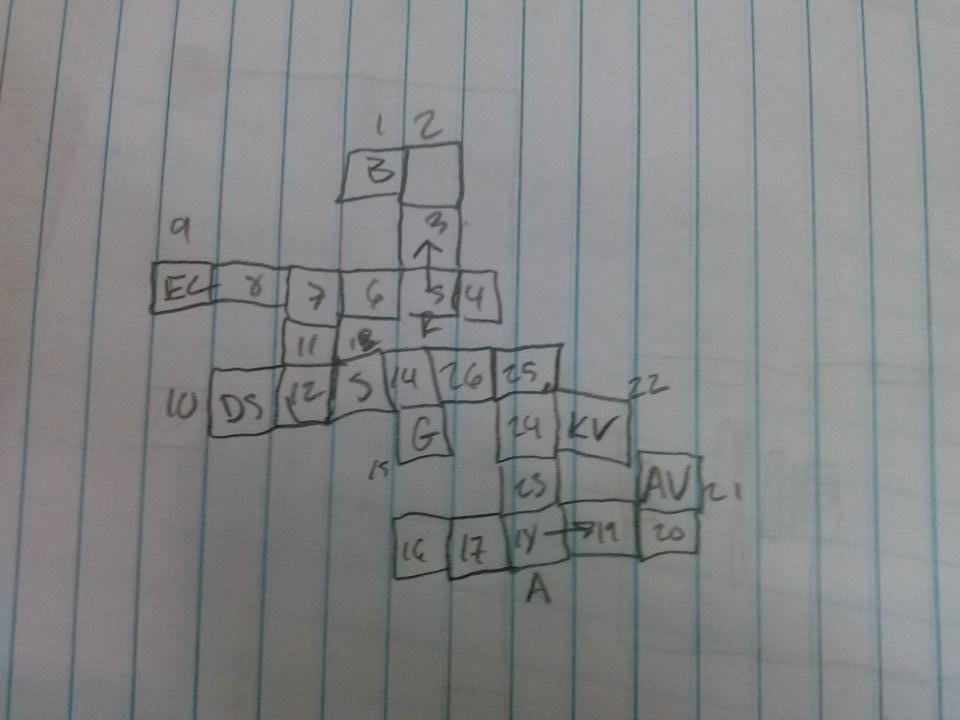 1 2
B
3
9
EL 8 7 6 5 4
11 13 F
10 DS 12 S 14 26 25
22
G 24 KV
15 23 AV 21
16 17 18 19 20
A